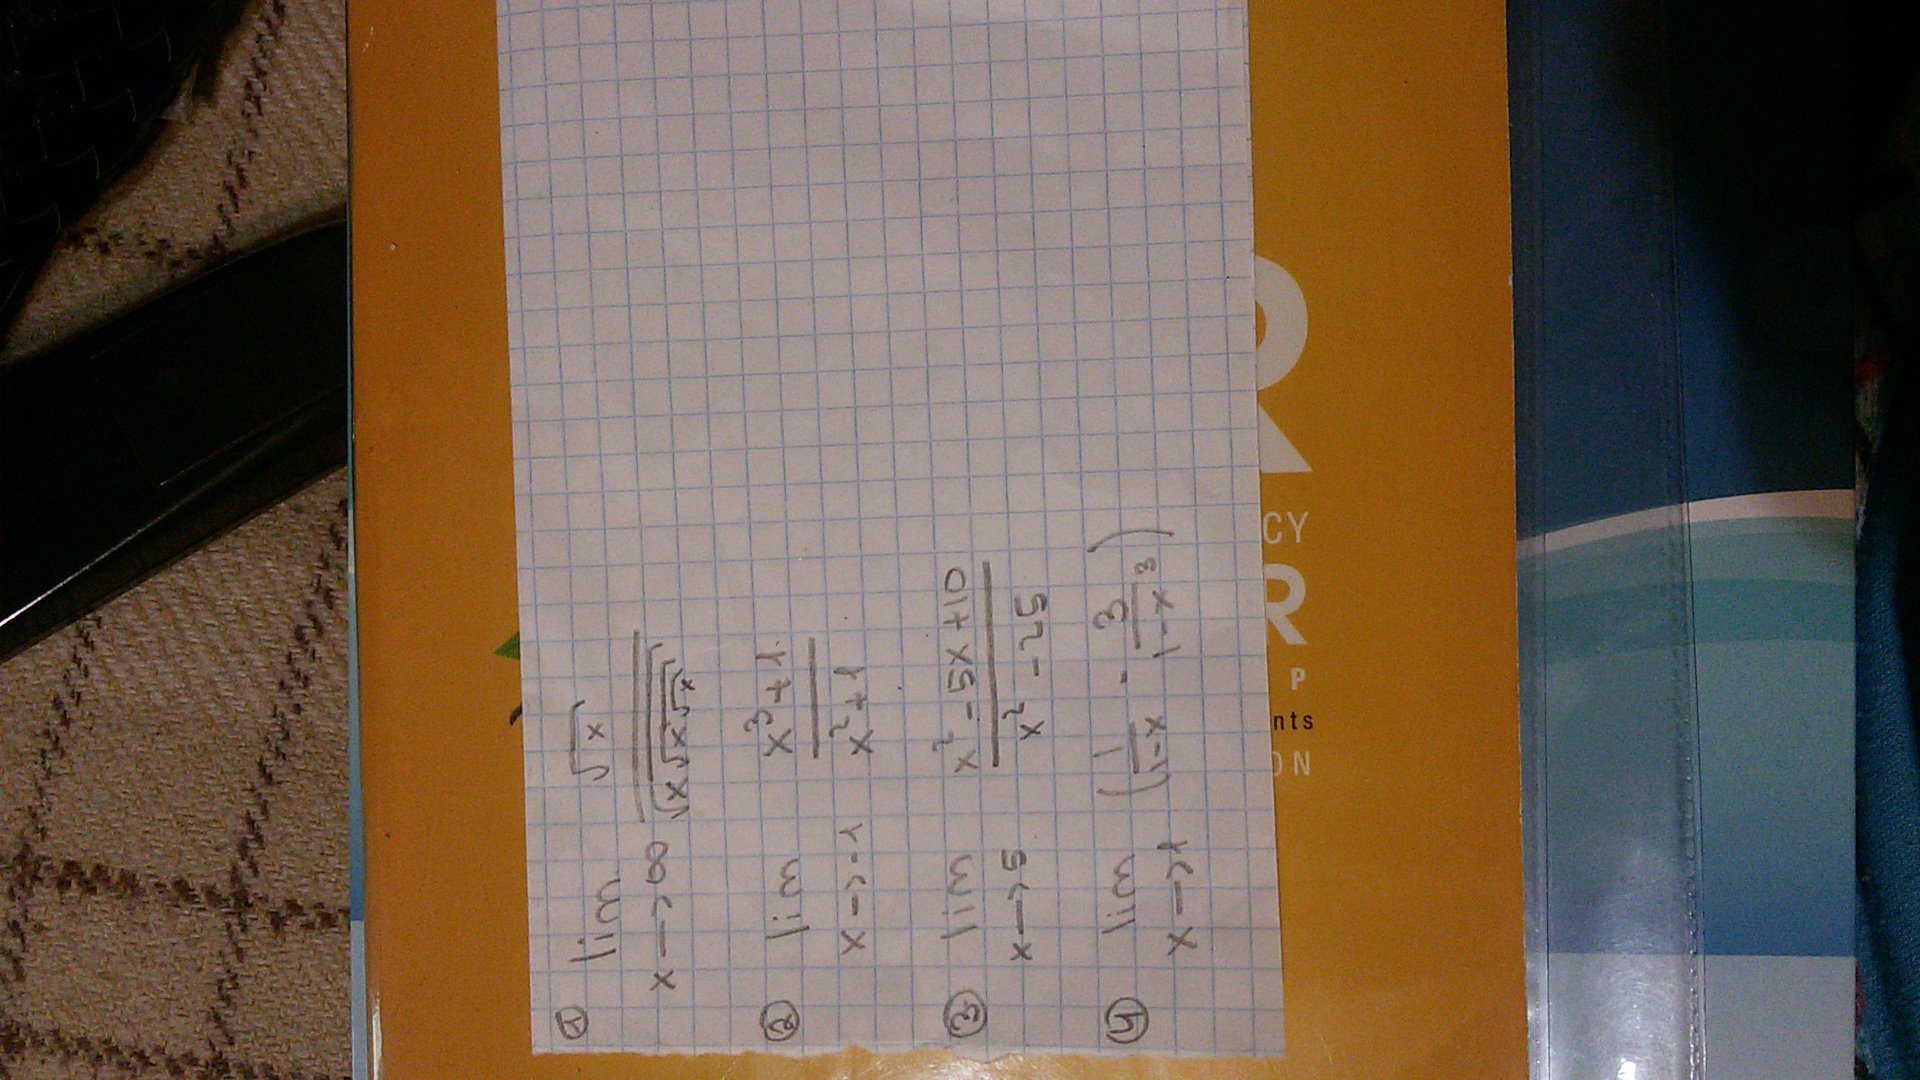 ① lim √x
x—>∞ √x√x√x
② lim x³+1
x—>-1 x²+1
③ lim x²-5x+10
x—>5 x²-25
④ lim (1/1-x - 3/1-x³)
x—>1
R
CY
R
P
nts
ON